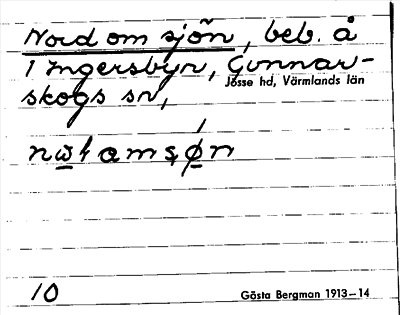 Nord om sjön, beb. å
1 Ingersbyn, Gunnar-
skogs sn,
Jösse hd, Värmlands län
10
Gösta Bergman 1913–14